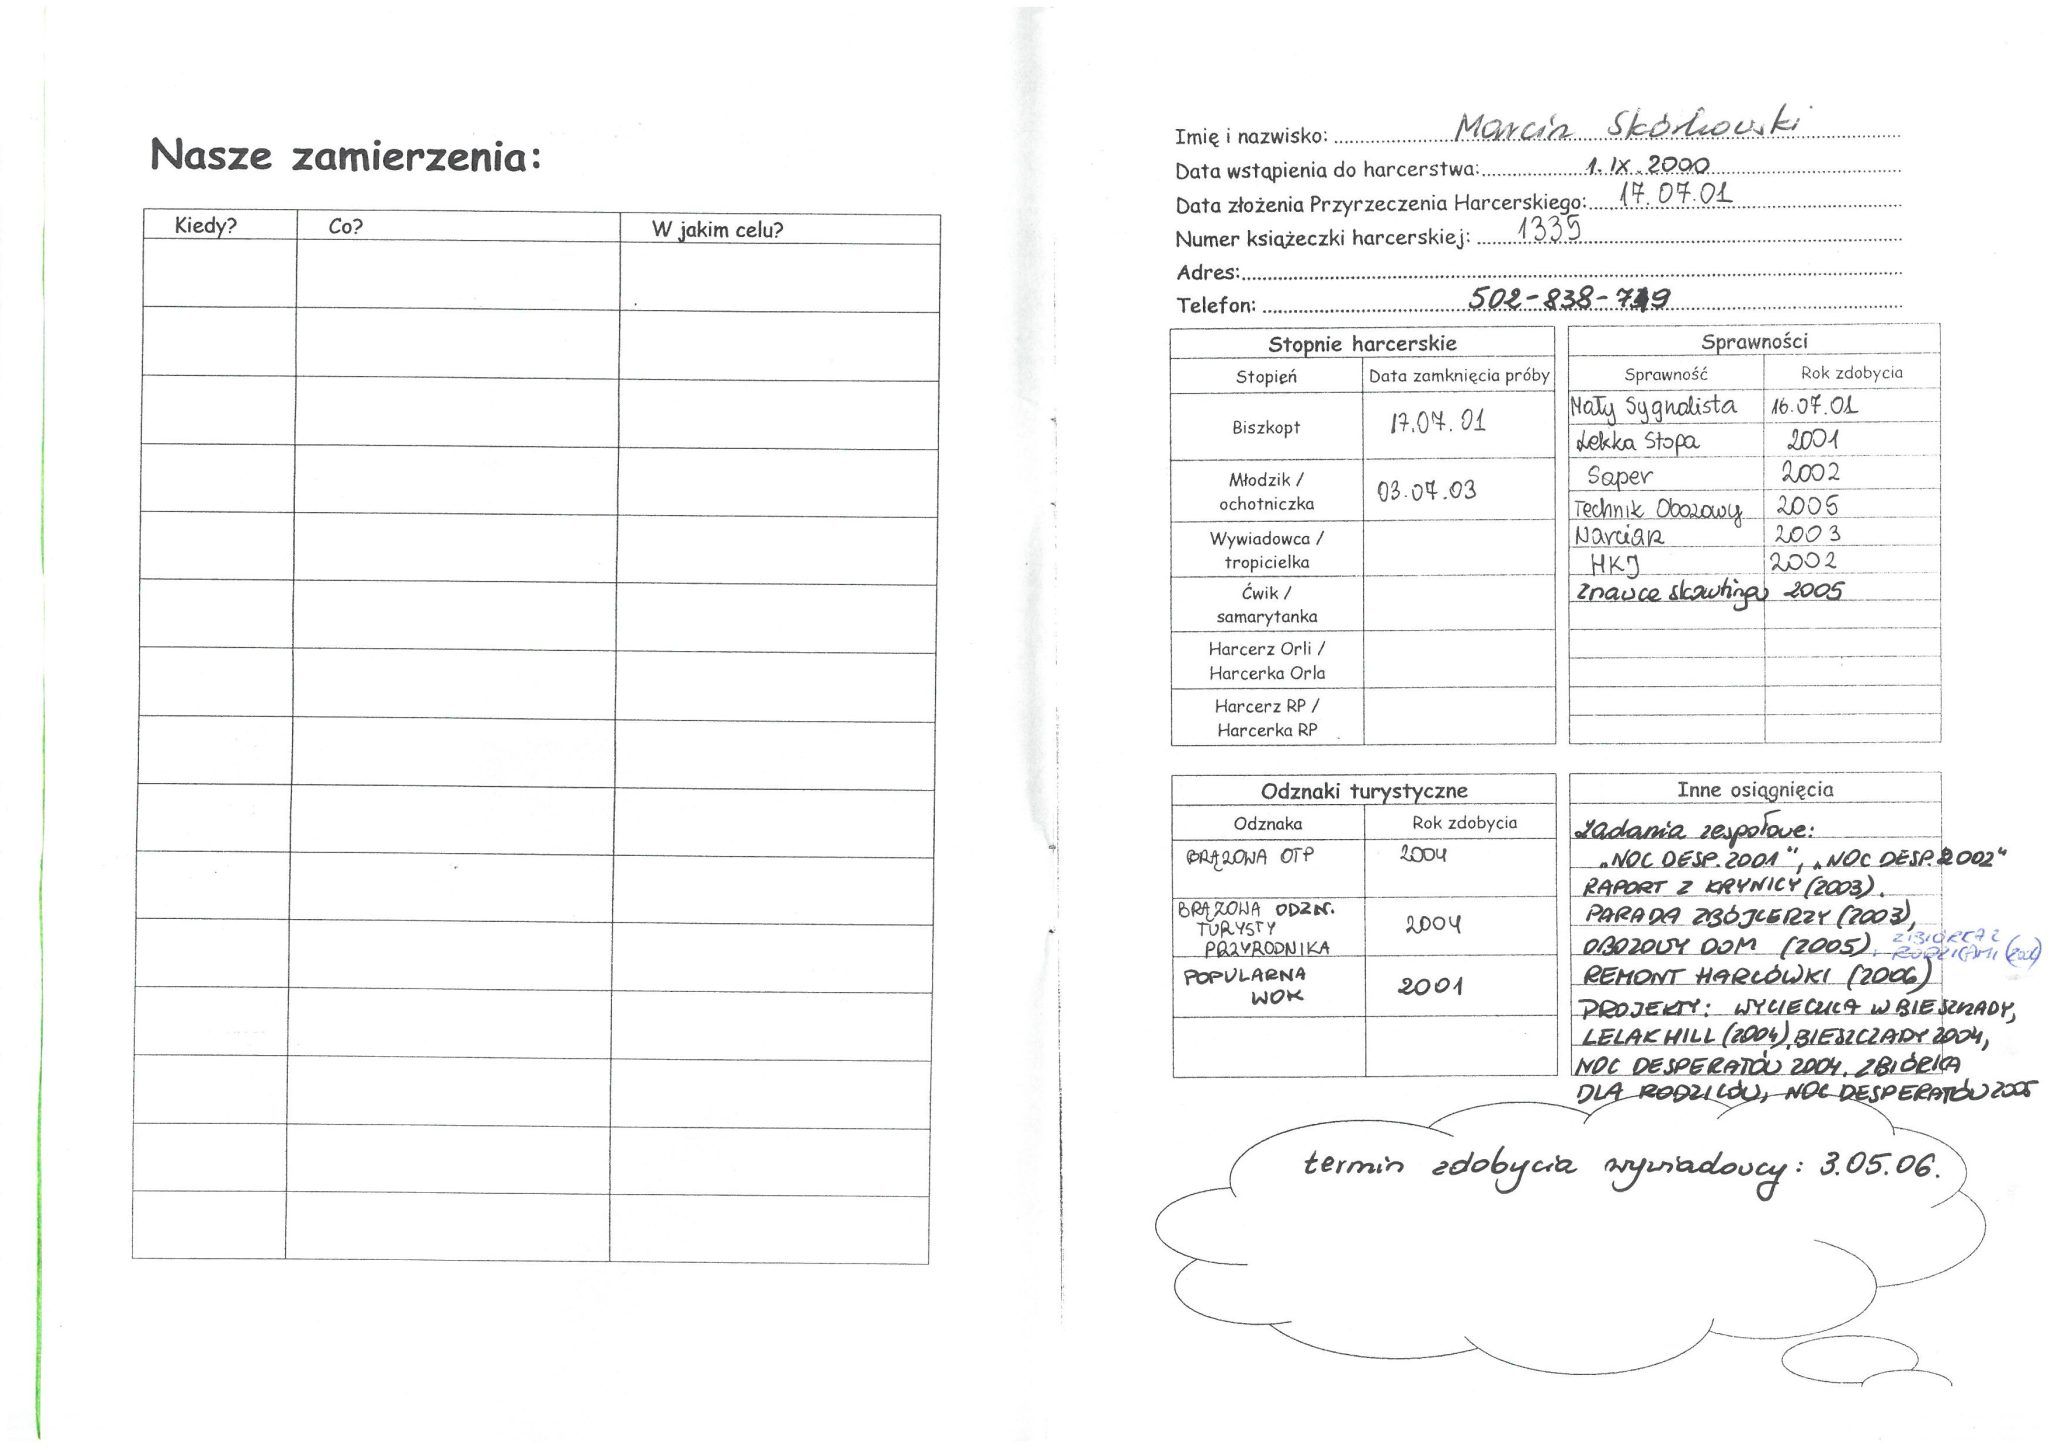 Nasze zamierzenia:
Kiedy? Co? W jakim celu?
Imię i nazwisko: Marcin Skórkowski
Data wstąpienia do harcerstwa: 1.IX.2000
Data złożenia Przyrzeczenia Harcerskiego: 17.07.01
Numer książeczki harcerskiej: 1335
Adres:
Telefon: 502-838-719
Stopnie harcerskie
Stopień Data zamknięcia próby
Biszkopt 17.07.01
Młodzik /
ochotniczka 03.07.03
Wywiadowca /
tropicielka
Ćwik /
samarytanka
Harcerz Orli /
Harcerka Orla
Harcerz RP /
Harcerka RP
Sprawności
Sprawność Rok zdobycia
Mały Sygnalista 16.07.01
Lekka Stopa 2001
Saper 2002
Technik Obozowy 2005
Narciarz 2003
HKJ 2002
Znawca skautingu 2005
Odznaki turystyczne
Odznaka Rok zdobycia
BRĄZOWA OTP 2004
BRĄZOWA ODZN.
TURYSTY 2004
PRZYRODNIKA
POPULARNA
WOK 2001
Inne osiągnięcia
Zadania zespołowe:
"NOC DESP. 2001", "NOC DESP. 2002"
RAPORT Z KRYNICY (2003).
PARADA ZBÓJCERZY (2003),
OBOZOWY DOM (2005) + ZBIÓRKA Z
RODZICAMI
REMONT HARCÓWKI (2006)
PROJEKTY: WYCIECZKA W BIESZCZADY,
LELAK HILL (2004), BIESZCZADY 2004,
NOC DESPERATÓW 2004, ZBIÓRKA
DLA RODZICÓW, NOC DESPERATÓW 2005
termin zdobycia wywiadowcy: 3.05.06.